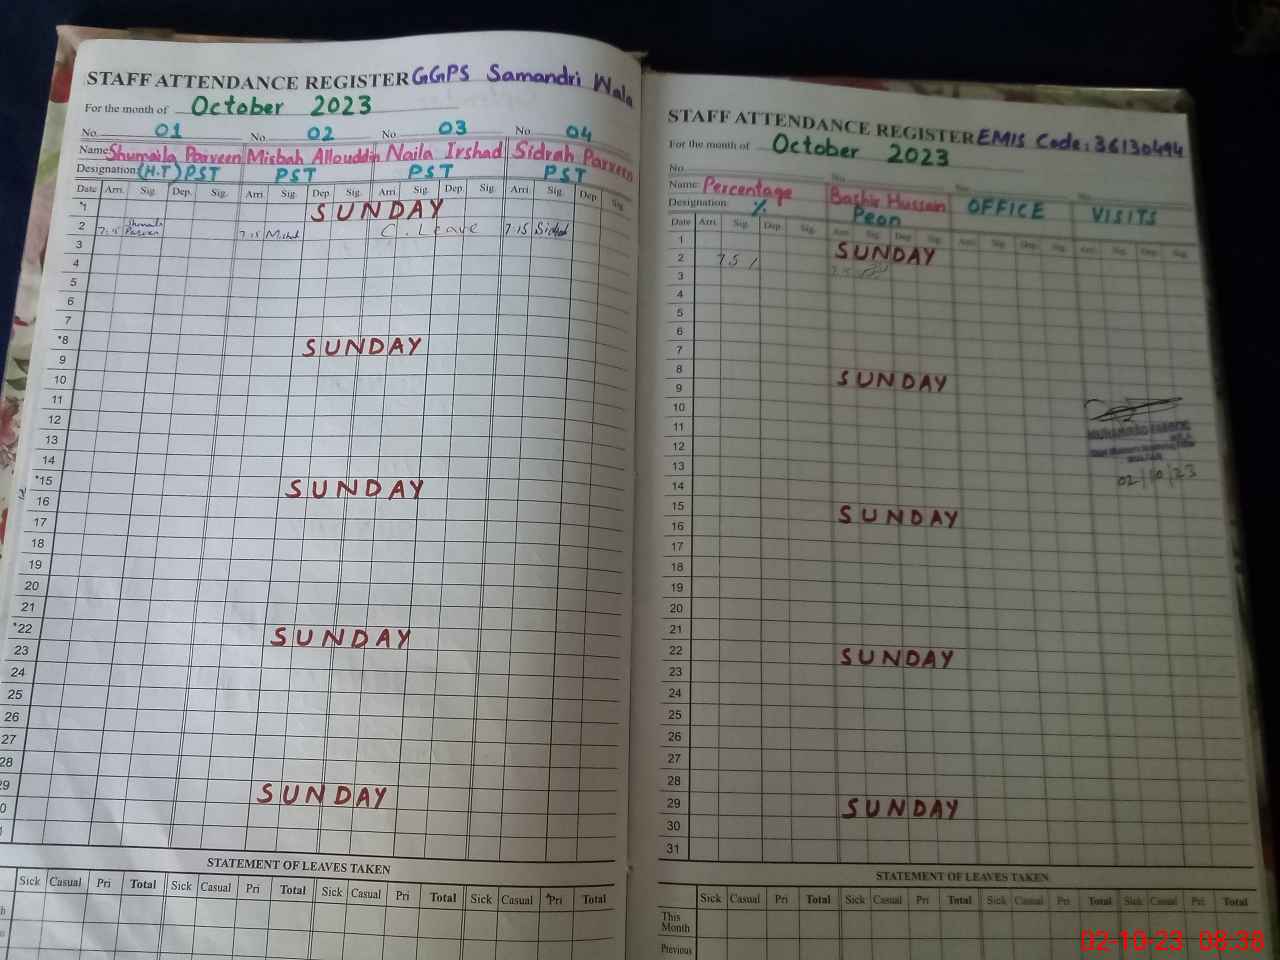 STAFF ATTENDANCE REGISTER GGPS Samandri Wala
For the month of October 2023
No. 01 No. 02 No. 03 No. 04
Name: Shumaila Parveen Misbah Allouddin Naila Irshad Sidrah Parveen
Designation: (H.T) PST PST PST PST
Date Arri. Sig. Dep. Sig. Arri. Sig. Dep. Sig. Arri Sig. Dep. Sig. Arri Sig. Dep. Sig.
*1 SUNDAY
2 7:15 Shumaila Parveen 7:15 Misbah C. Leave 7:15 Sidrah
3
4
5
6
7
*8 SUNDAY
9
10
11
12
13
14
*15 SUNDAY
16
17
18
19
20
21
*22 SUNDAY
23
24
25
26
27
28
29 SUNDAY
STATEMENT OF LEAVES TAKEN
Sick Casual Pri Total Sick Casual Pri Total Sick Casual Pri Total Sick Casual Pri Total
STAFF ATTENDANCE REGISTER EMIS Code: 36130494
For the month of October 2023
No. No. No. No.
Name: Percentage Bashir Hussain OFFICE VISITS
Designation: % Peon
Date Arri. Sig. Dep. Sig. Arri. Sig. Dep. Sig. Arri. Sig. Dep. Sig. Arri. Sig. Dep. Sig.
1 SUNDAY
2 75 /
3
4
5
6
7
8 SUNDAY
9
10
11
12
13
14
15 SUNDAY
16
17
18
19
20
21
22 SUNDAY
23
24
25
26
27
28
29 SUNDAY
30
31
02/10/23
STATEMENT OF LEAVES TAKEN
Sick Casual Pri Total Sick Casual Pri Total Sick Casual Pri Total Sick Casual Pri Total
This Month
Previous
02-10-23 08:38